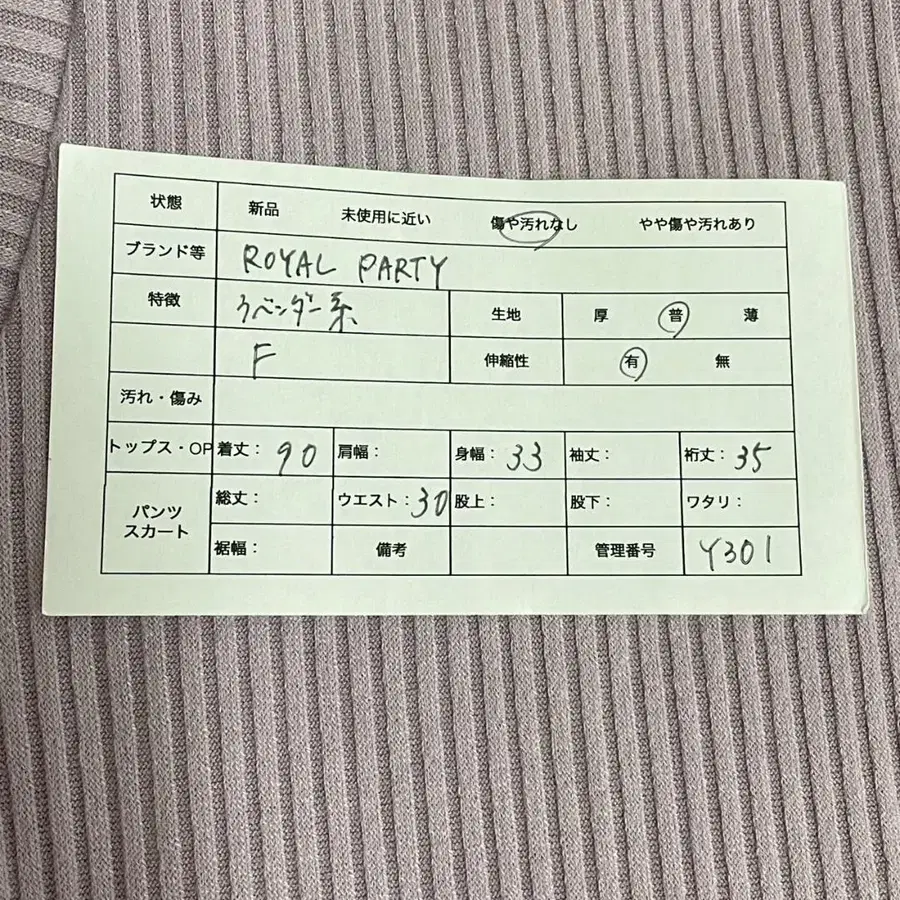 状態 新品 未使用に近い 傷や汚れなし やや傷や汚れあり
ブランド等 ROYAL PARTY
特徴 ラベンダー系 生地 厚 普 薄
F 伸縮性 有 無
汚れ・傷み
トップス・OP 着丈： 90 肩幅： 身幅： 33 袖丈： 裄丈： 35
パンツ スカート 総丈： ウエスト： 30 股上： 股下： ワタリ：
裾幅： 備考 管理番号 Y301